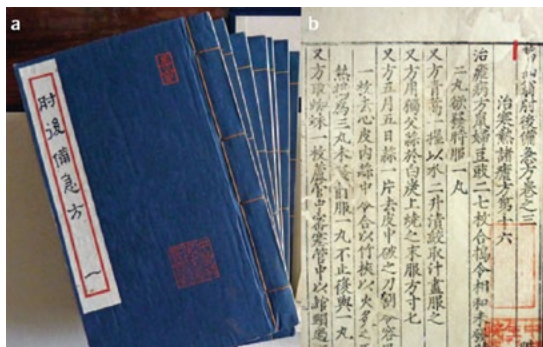 a
肘後備急方 一
b
肘後備急方卷之三
治寒熱諸瘧方第十六
治瘧病方鼠婦豆豉二七枚合搗令相和未發
二丸欲發時服一丸
又方青蒿一握以水二升漬絞取汁盡服之
又方用獨父蒜於白炭上燒之末服方寸匕
又方五月五日蒜一片去皮中破之刀割令容
一枚去心皮內蒜中令合以竹挾以火炙之
熱搗爲三丸未發前服一丸不止復與一丸
又方取蜘蛛一枚蘆管中密塞管中以綰頸過